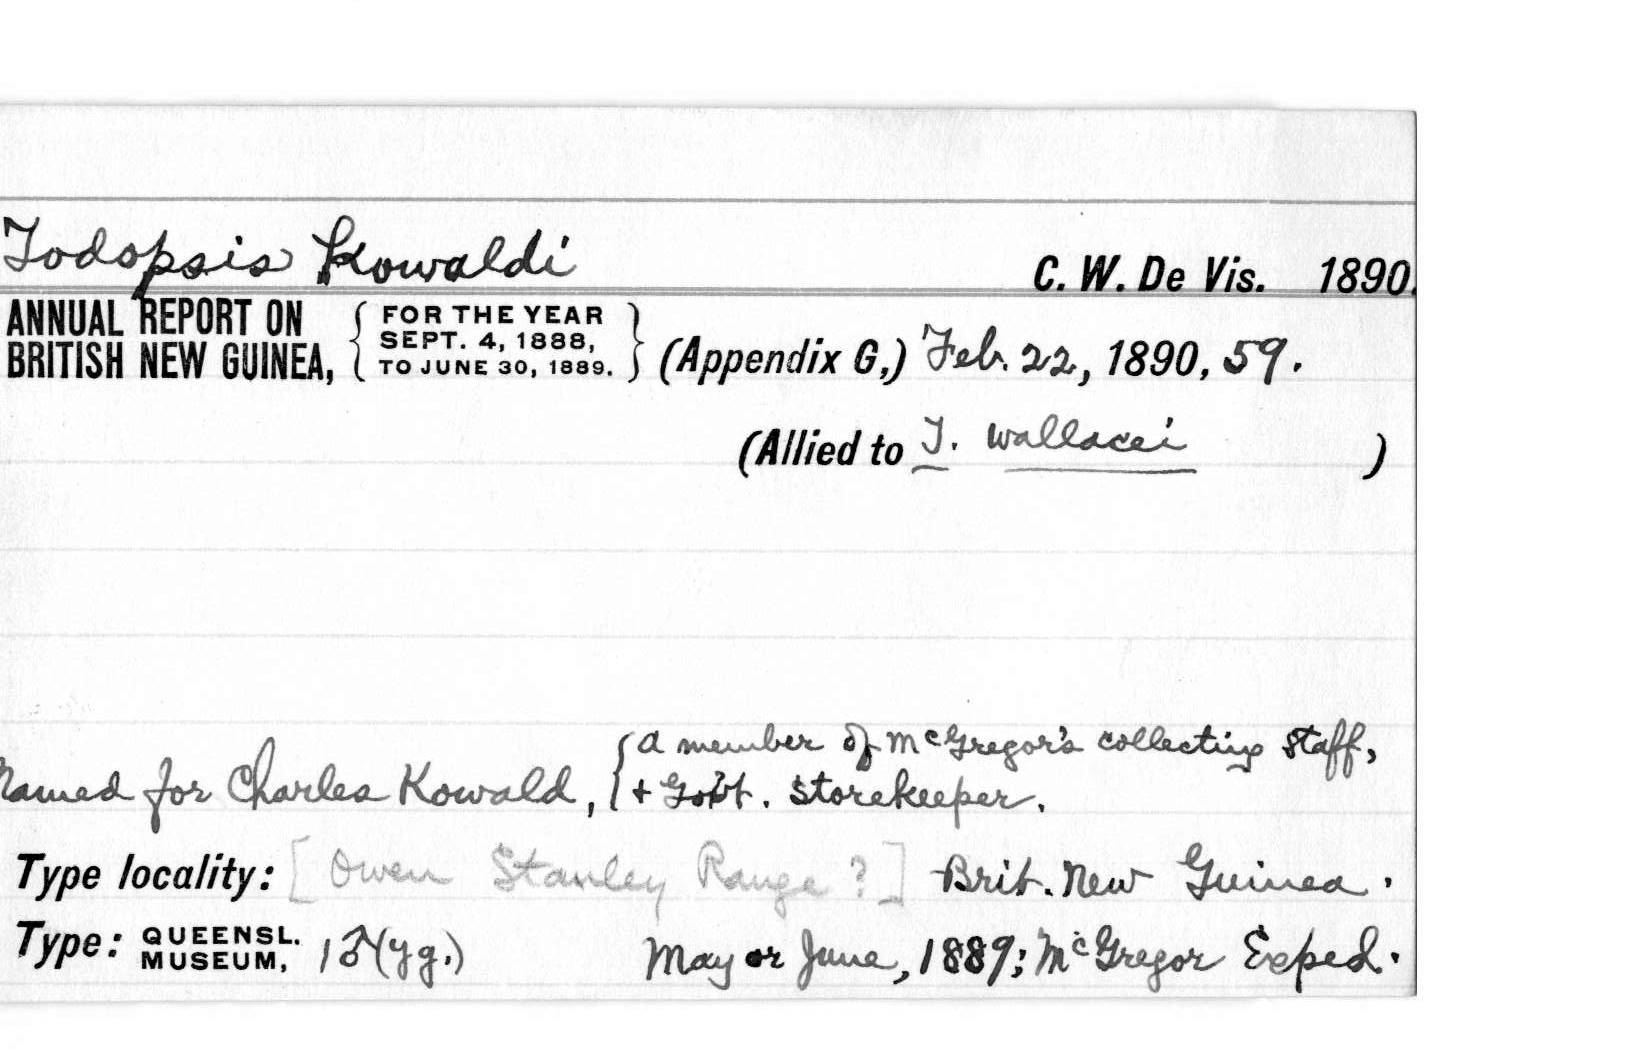 Todopsis Kowaldi C. W. De Vis. 1890.
ANNUAL REPORT ON BRITISH NEW GUINEA, { FOR THE YEAR SEPT. 4, 1888, TO JUNE 30, 1889. } (Appendix G,) Feb. 22, 1890, 59.
(Allied to T. wallacei )
Named for Charles Kowald, { a member of McGregor's collecting staff,
+ Gov't. storekeeper.
Type locality: [Owen Stanley Range ?] Brit. New Guinea.
Type: QUEENSL. MUSEUM, 1♂(yg.) May or June, 1889; McGregor Exped.